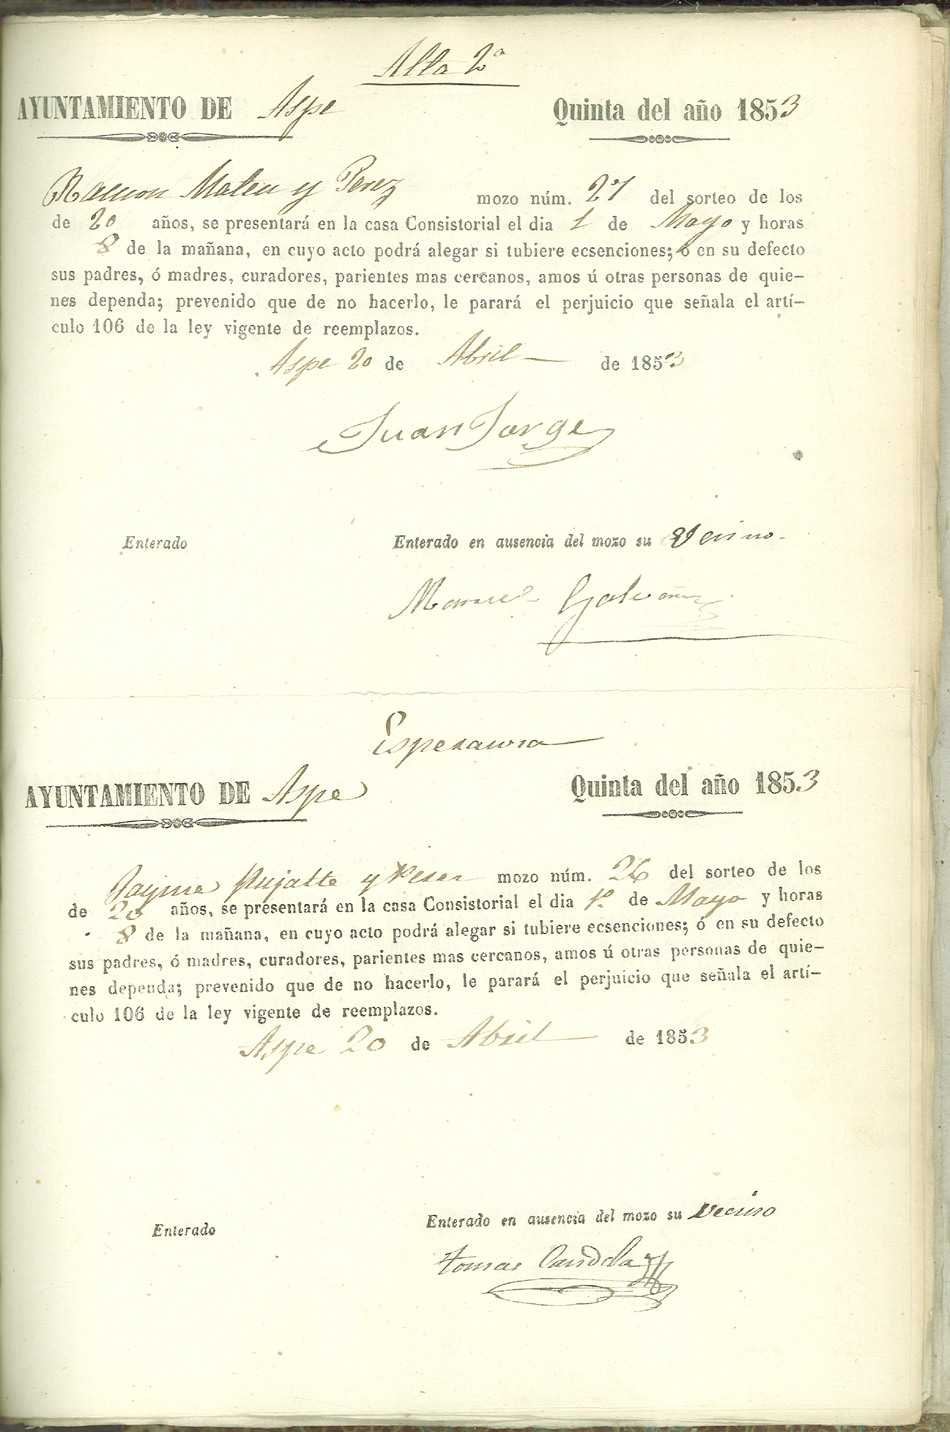 Alla 2ª
AYUNTAMIENTO DE Aspe
Quinta del año 1853
Ramon Mateu y Perez mozo núm. 27 del sorteo de los
de 20 años, se presentará en la casa Consistorial el dia 1 de Mayo y horas
8 de la mañana, en cuyo acto podrá alegar si tubiere ecsenciones; ó en su defecto
sus padres, ó madres, curadores, parientes mas cercanos, amos ú otras personas de quie–
nes dependa; prevenido que de no hacerlo, le parará el perjuicio que señala el artí–
culo 106 de la ley vigente de reemplazos.
Aspe 20 de Abril de 1853
Juan Jorge
Enterado
Enterado en ausencia del mozo su Vecino
Manuel Galvañ
Esperanza
AYUNTAMIENTO DE Aspe
Quinta del año 1853
Jayme Pujalte y mozo núm. 26 del sorteo de los
de 20 años, se presentará en la casa Consistorial el dia 1º de Mayo y horas
8 de la mañana, en cuyo acto podrá alegar si tubiere ecsenciones; ó en su defecto
sus padres, ó madres, curadores, parientes mas cercanos, amos ú otras personas de quie–
nes dependa; prevenido que de no hacerlo, le parará el perjuicio que señala el artí–
culo 106 de la ley vigente de reemplazos.
Aspe 20 de Abril de 1853
Enterado
Enterado en ausencia del mozo su Vecino
tomas Candela